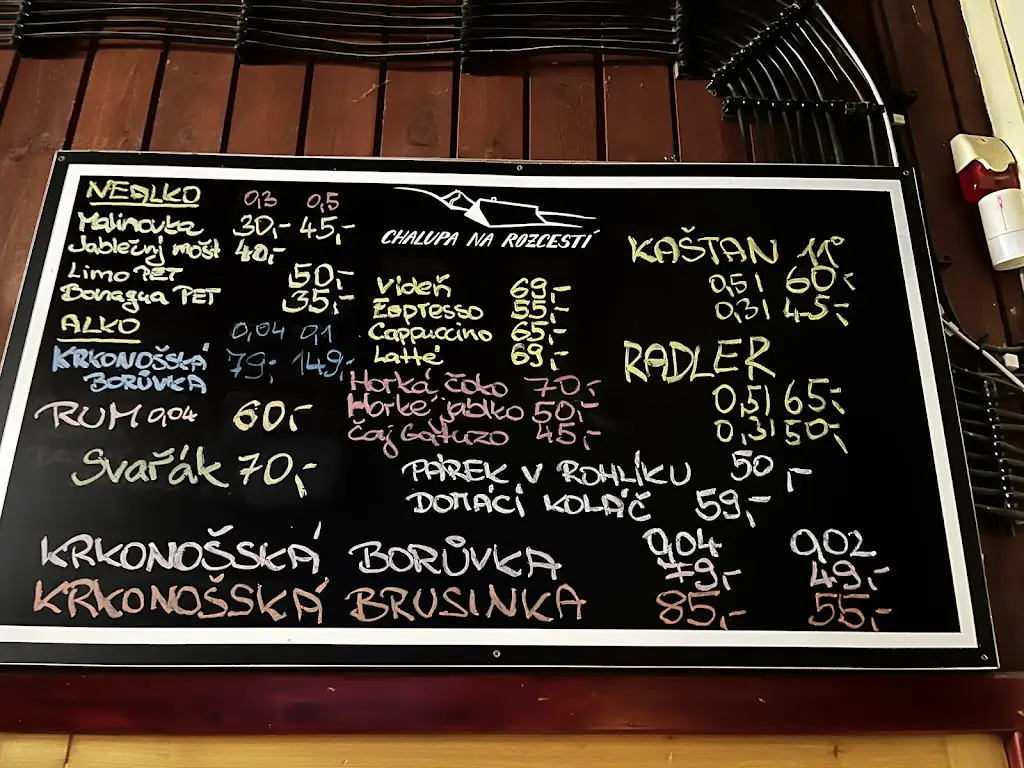 NEALKO 0,3 0,5
Malinovka 30,- 45,-
Jablečný mošt 40,-
Limo PET 50,-
Bonaqua PET 35,-
ALKO 0,04 0,1
KRKONOŠSKÁ 79,- 149,-
BORŮVKA
RUM 0,04 60,-
Svařák 70,-
CHALUPA NA ROZCESTÍ
Videň 69,-
Espresso 55,-
Cappuccino 65,-
Latté 69,-
Horká čoko 70,-
Horké jablko 50,-
Čaj Gatuzo 45,-
KAŠTAN 11°
0,5l 60,-
0,3l 45,-
RADLER
0,5l 65,-
0,3l 50,-
PÁREK V ROHLÍKU 50,-
DOMÁCÍ KOLÁČ 59,-
0,04 0,02
KRKONOŠSKÁ BORŮVKA 79,- 49,-
KRKONOŠSKÁ BRUSINKA 85,- 55,-